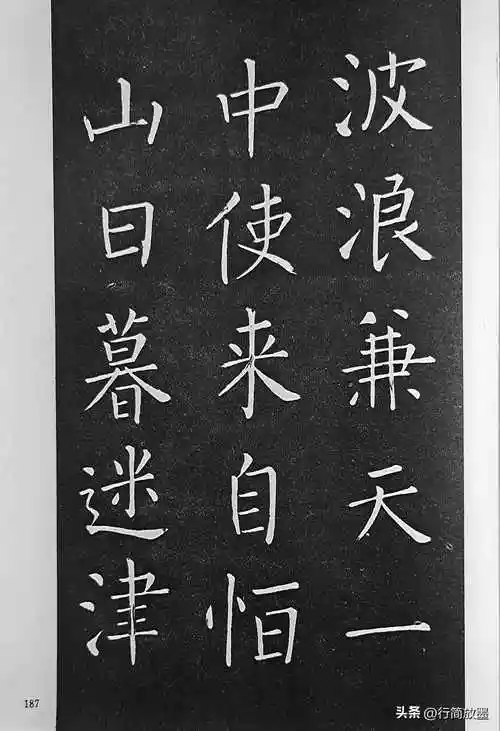 波浪兼天一
中使来自恒
山日暮迷津
187
头条@行简放墨